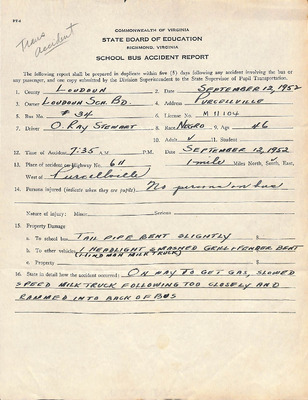 Trans
accident
COMMONWEALTH OF VIRGINIA
STATE BOARD OF EDUCATION
RICHMOND, VIRGINIA
SCHOOL BUS ACCIDENT REPORT
The following report shall be prepared in duplicate within five (5) days following any accident involving the bus or
any passenger, and one copy submitted by the Division Superintendent to the State Supervisor of Pupil Transportation.
1. County LOUDOUN 2. Date SEPTEMBER 12, 1952
3. Owner LOUDOUN SCH. BD. 4. Address PURCELLVILLE
5. Bus No. # 34 6. License No. M 11104
7. Driver O. RAY STEWART 8. Race NEGRO 9. Age 46
10. Adult ✓ 11. Student
12. Time of Accident 7:35 A.M. P.M. Date SEPTEMBER 12, 1952
13. Place of accident on Highway No. 611 1 mile Miles North, South, East,
West of Purcellville
14. Persons injured (indicate when they are pupils) No persons on bus
Nature of injury: Minor Serious
15. Property Damage
a. To school bus TAIL PIPE BENT SLIGHTLY $
b. To other vehicles 1 HEADLIGHT SMASHED GRILL & FENDER BENT
(HINDMAN MILK TRUCK)
c. Property $
16. State in detail how the accident occurred: ON WAY TO GET GAS, SLOWED
SPEED MILK TRUCK FOLLOWING TOO CLOSELY AND
RAMMED INTO BACK OF BUS